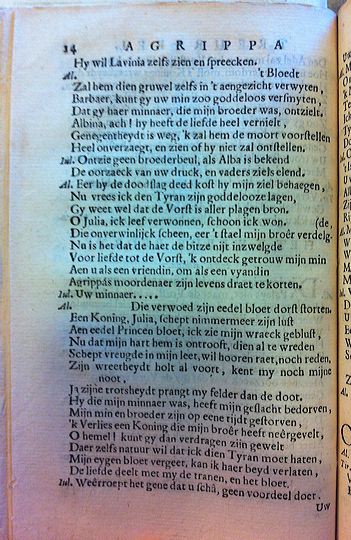 34 AGRIPPA
Hy wil Lavinia zelfs zien en spreecken.
Al. 't Bloedt
Zal hem dien gruwel zelfs in 't aengezicht verwyten,
Barbaer, kunt gy uw min zoo goddeloos versmyten,
Dat gy haer minnaer, die mijn broeder was, ontzielt.
Albina, ach! hy heeft de liefde heel vernielt,
Genegentheydt is weg, 'k zal hem de moort voorstellen
Heel onverzaegt, en zien of hy niet zal ontstellen.
Iul. Ontzie geen broederbeul, als Alba is bekend
De oorzaeck van uw druck, en vaders ziels elend.
Al. Eer hy de dootslag deed kost hy mijn ziel behaegen,
Nu vrees ick den Tyran zijn goddelooze lagen,
Gy weet wel dat de Vorst is aller plagen bron.
O Julia, ick leef verwonnen, schoon ick won. (de,
Die onverwinlijck scheen, eer 't stael mijn broêr verdelg-
Nu is het dat de haer de bitze nijt inzwelgde
Voor liefde tot de Vorst, 'k ontdeck getrouw mijn min
Aen u als een vriendin, om als een vyandin
Agrippas moordenaer zijn levens draet te korten.
Iul. Uw minnaer.....
Al. Die verwoed zijn eedel bloet dorst storten.
Een Koning, Julia, schept nimmermeer zijn lust
Aen eedel Princen bloet, ick zie mijn wraeck geblust,
Nu dat mijn hart hem is ontrooft, dien al te wreden
Schept vreugde in mijn leet, wil hooren raet, noch reden.
Zijn wreetheydt holt al voort, kent my noch mijne
noot,
Ja zijne trotsheydt prangt my felder dan de doot.
Hy die mijn minnaer was, heeft mijn geslacht bedorven,
Mijn min en broeder zijn op eene tijdt gestorven,
'k Verlies een Koning die mijn broêr heeft neêrgevelt,
O hemel! kunt gy dan verdragen zijn gewelt
Daer zelfs natuur wil dat ick dien Tyran moet haten,
Mijn eygen bloet vergeet, kan ik haer beyd verlaten,
De liefde deelt met my de tranen, en het bloet.
Iul. Weêrroept het gene dat u schâ, geen voordeel doet.
Uw